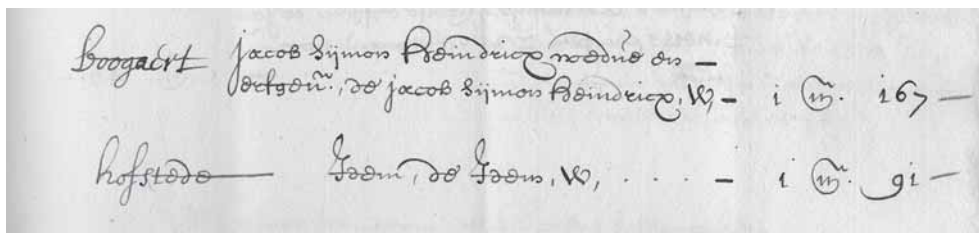 Boogaert Jacob Sijmon Heindricx wedúe en –
erfgen., de Jacob Sijmon Heindricx, W, – 1 m. 167 –
hofstede Idem, de Idem, W, . . . . – 1 m. 91 –